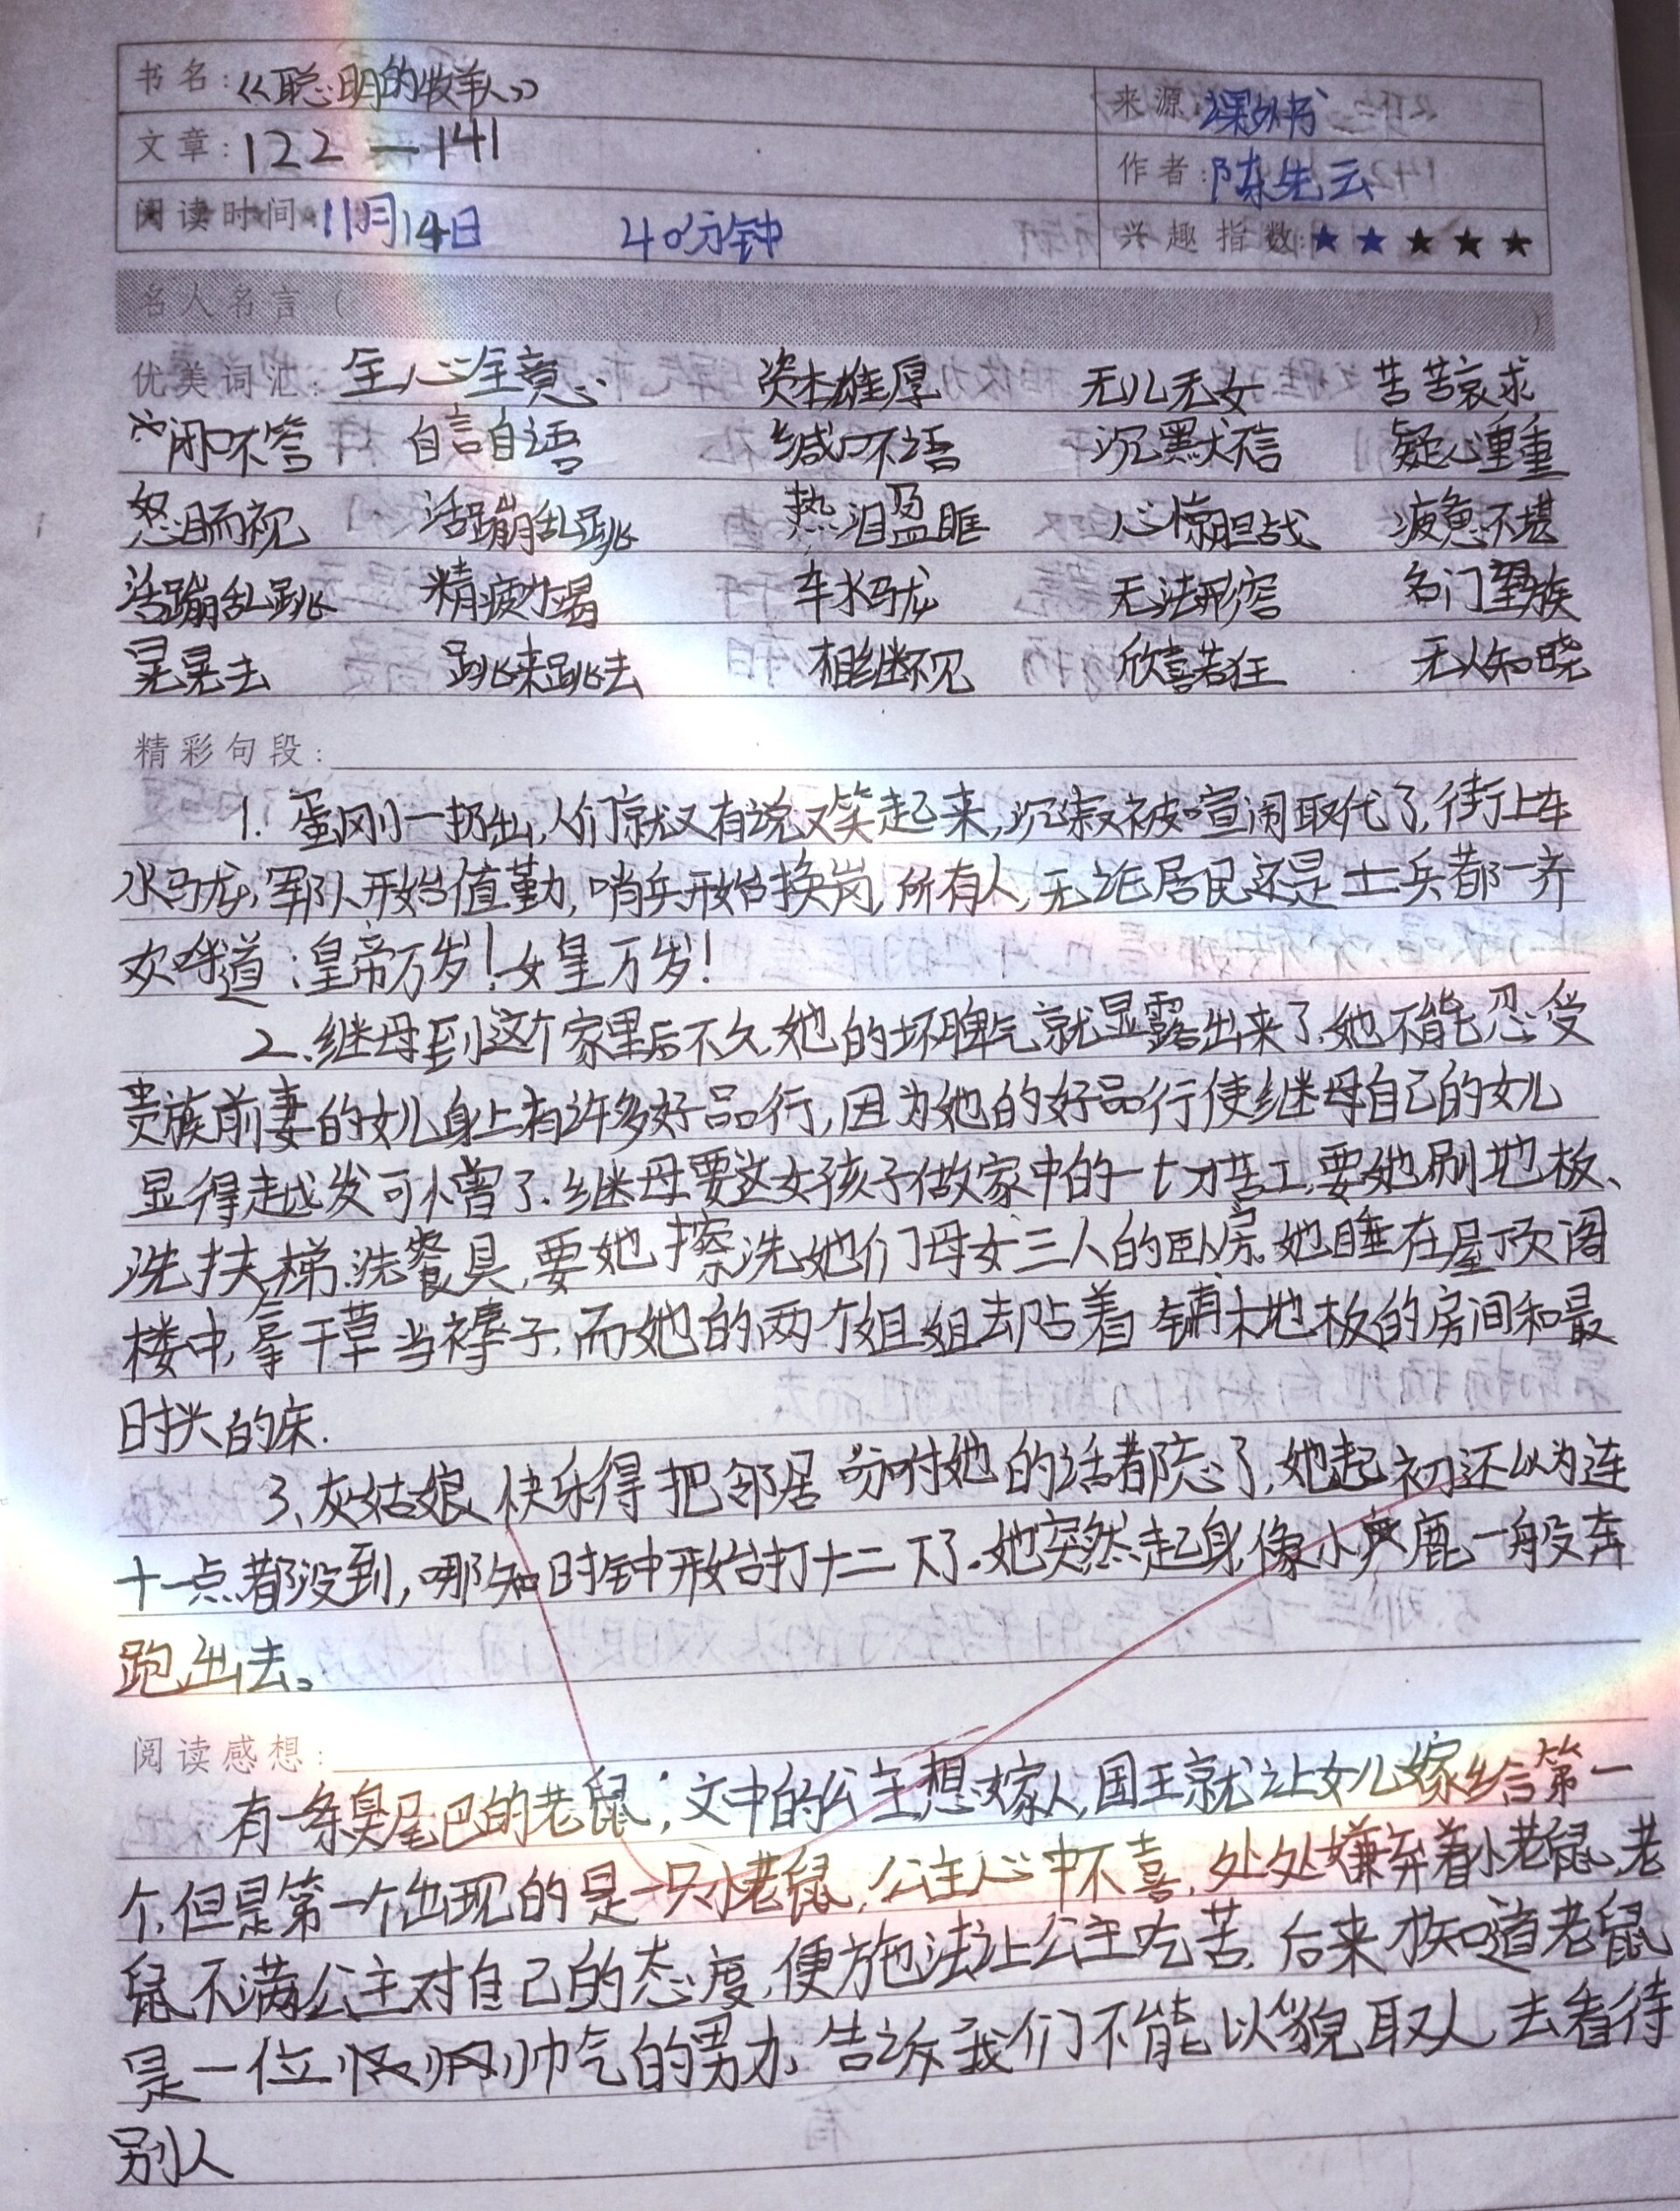 书名:《聪明的牧羊人》 来源:课外书
文章:122—141 作者:陈先云
阅读时间:11月14日 40分钟 兴趣指数:★★★★★
名人名言( )
优美词汇: 全心全意 资本雄厚 无儿无女 苦苦哀求
闭口不答 自言自语 缄口不语 沉默不信 疑心重重
怒目而视 活蹦乱跳 热泪盈眶 心惊胆战 疲惫不堪
活蹦乱跳 精疲力竭 车水马龙 无法形容 名门望族
晃晃去 跳来跳去 相继不见 欣喜若狂 无人知晓
精彩句段:
1. 蛋刚一扔出,人们就又有说又笑起来,沉寂被喧闹取代了,街上车
水马龙,军队开始值勤,哨兵开始换岗,所有人,无论居民还是士兵都一齐
欢呼道:皇帝万岁!女皇万岁!
2.继母到这个家里后不久,她的坏脾气就显露出来了.她不能忍受
贵族前妻的女儿身上有许多好品行,因为她的好品行使继母自己的女儿
显得越发可憎了.继母要这女孩子做家中的一切苦工,要她刷地板、
洗扶梯.洗餐具,要她擦洗她们母女三人的卧房.她睡在屋顶阁
楼中,拿干草当褥子,而她的两个姐姐却占着铺木地板的房间和最
时兴的床.
3、灰姑娘快乐得把邻居吩咐她的话都忘了,她起初还以为连
十一点都没到,哪知时钟开始打十二下了.她突然起身,像小鹿一般奔
跑出去。
阅读感想:
有一条臭尾巴的老鼠;文中的公主想嫁人,国王就让女儿嫁给第一
个,但是第一个出现的是一只小老鼠,公主心中不喜,处处嫌弃着小老鼠,老
鼠不满公主对自己的态度,便施法让公主吃苦,后来才知道老鼠
是一位帅气的男力、告诉我们不能以貌取人去看待
别人